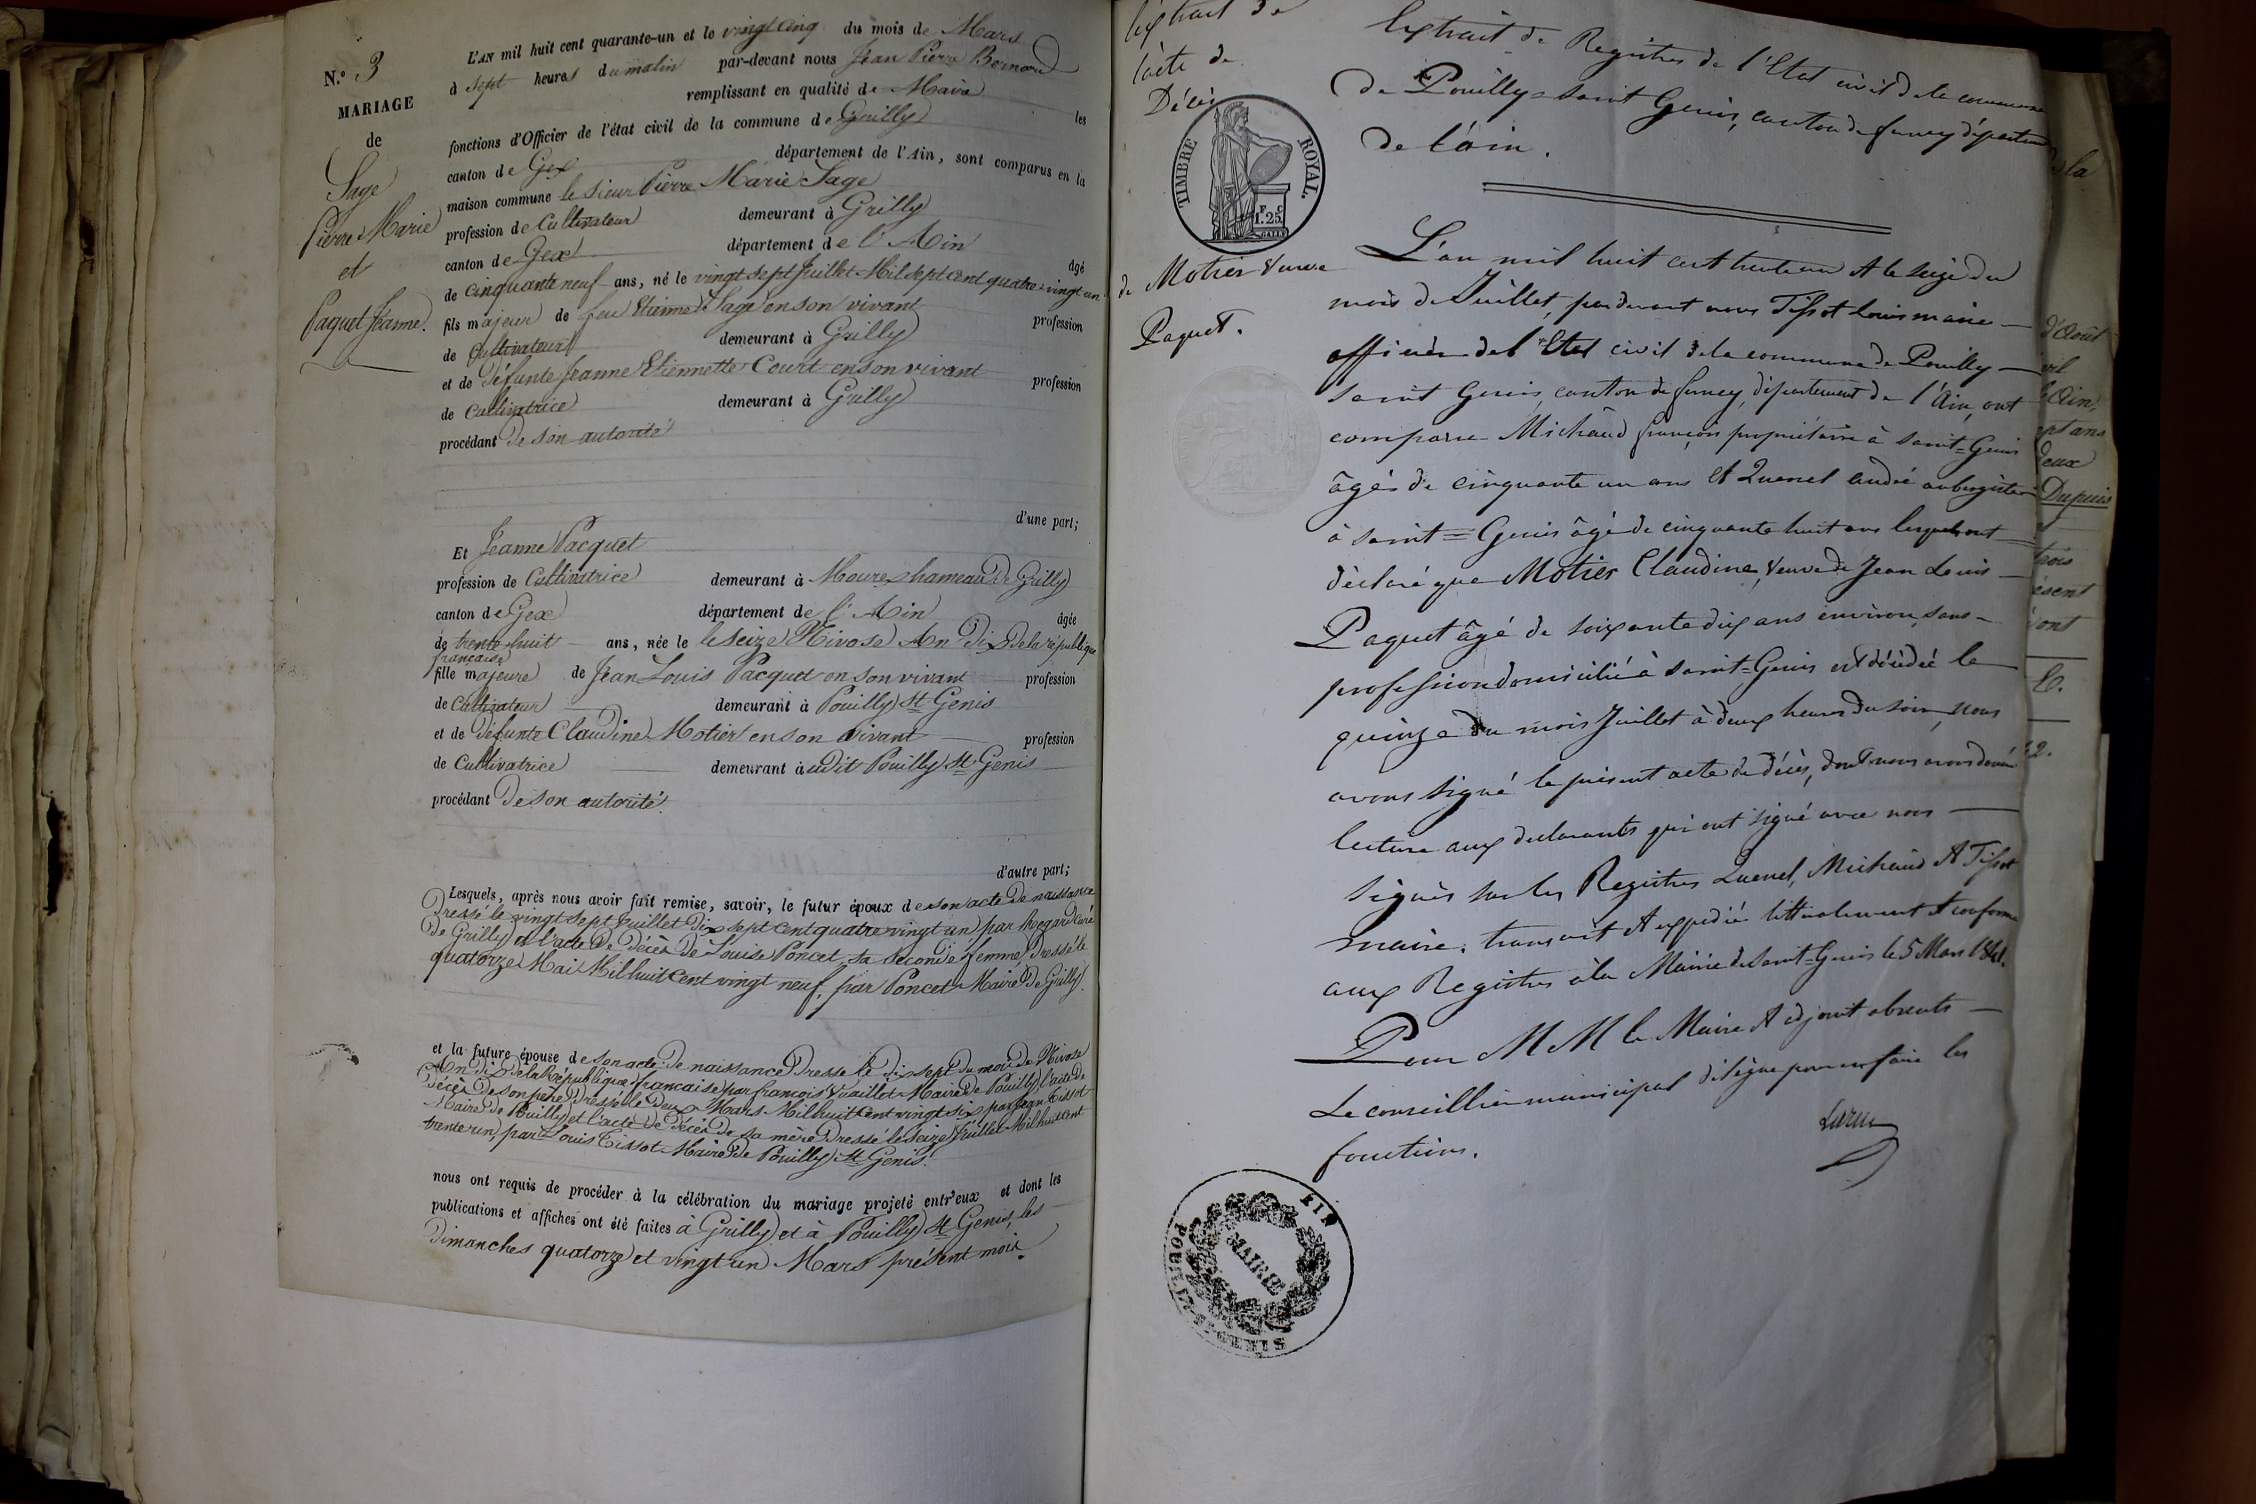 N.º 3
MARIAGE
de
Sage
Pierre Marie
et
Paquet Jeanne.
L'AN mil huit cent quarante-un et le vingt cinq du mois de Mars
à sept heures du matin par-devant nous Jean Pierre Bernard
remplissant en qualité de Maire les
fonctions d'Officier de l'état civil de la commune de Grilly
canton de Gex département de l'Ain, sont comparus en la
maison commune le sieur Pierre Marie Sage
profession de Cultivateur demeurant à Grilly
canton de Gex département de l'Ain âgé
de cinquante neuf ans, né le vingt sept Juillet Mil sept cent quatre-vingt un
fils majeur de feu Etienne Sage en son vivant profession
de Cultivateur demeurant à Grilly
et de défunte Jeanne Etiennette Court en son vivant profession
de Cultivatrice demeurant à Grilly
procédant de son autorité
d'une part;
Et Jeanne Pacquet
profession de Cultivatrice demeurant à Mourex hameau de Grilly
canton de Gex département de l'Ain âgée
de trente huit ans, née le le seize Nivose An Dix de la république
française
fille majeure de Jean Louis Pacquet en son vivant profession
de Cultivateur demeurant à Pouilly St Genis
et de défunte Claudine Motier en son vivant profession
de Cultivatrice demeurant à udit Pouilly St Genis
procédant de son autorité.
d'autre part;
Lesquels, après nous avoir fait remise, savoir, le futur époux de son acte de naissance
Dressé le vingt sept Juillet Dix sept cent quatre vingt un par Regard curé
de Grilly et l'acte de Décès de Louise Poncet sa seconde femme, Dressé le
quatorze Mai Mil huit cent vingt neuf, par Poncet Maire de Grilly.
et la future épouse de son acte de naissance Dressé le dix sept du mois de Nivose
An dix de la République française par françois Vuaillet Maire de Pouilly l'acte de
décès de son père Dressé le Deux Mars Mil huit cent vingt six par Jean Tissot
Maire de Pouilly et l'acte de Décès de sa mère Dressé le seize Juillet Mil huit cent
trente un, par Louis Tissot Maire de Pouilly St Genis.
nous ont requis de procéder à la célébration du mariage projeté entr'eux et dont les
publications et affiches ont été faites à Grilly et à Pouilly St Genis, les
Dimanches quatorze et vingt un Mars présent mois.
Extrait de
l'acte de
Décès
TIMBRE ROYAL.
F. C.
1.25
de Motier Veuve
Paquet.
Extrait de Registres de l'Etat civil de la commune
de Pouilly-saint Genis, canton de ferney département
de l'ain.
L'an mil huit cent trente un et le seize du
mois de Juillet, par devant nous Tissot Louis maire
officier de l'Etat civil de la commune de Pouilly
saint Genis, canton de ferney, département de l'Ain, ont
comparu Michaud françois propriétaire à saint=Genis
âgés de cinquante un ans et Quenel andré aubergiste
à saint=Genis âgé de cinquante huit ans lesquels ont
déclaré que Motier Claudine, Veuve de Jean Louis
Paquet âgé de soixante dix ans environ, sans
profession domicilié à saint=Genis est décédée le
quinze du mois Juillet à deux heures du soir, nous
avons signé le présent acte de décès, dont nous avons donné
lecture aux declarants qui ont signé avec nous
signés sur les Registres Quenel, Michaud et Tissot
maire. transcrit et expédiée littéralement et conforme
aux Registres à la Mairie de Saint-Genis le 5 Mars 1841.
Pour MM le Maire et adjoint absents
Le conseillier municipal délégué pour en faire les
fonctions.
MAIRIE
POUILLY ST GENIS
AIN
d'Août
Dupuis